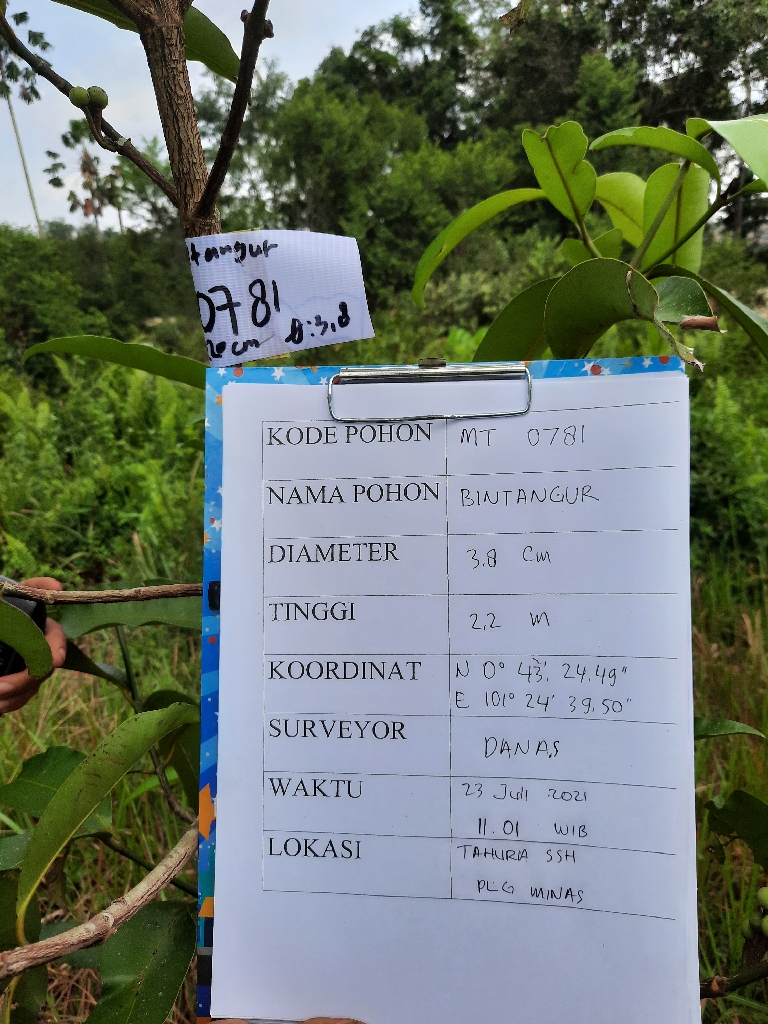 tangur
0781
20 cm D:3,8
KODE POHON MT 0781
NAMA POHON BINTANGUR
DIAMETER 3.8 Cm
TINGGI 2.2 m
KOORDINAT N 0° 43' 24.49"
E 101° 24' 39.50"
SURVEYOR DANAS
WAKTU 23 Juli 2021
11.01 WIB
LOKASI TAHURA SSH
PLG MINAS